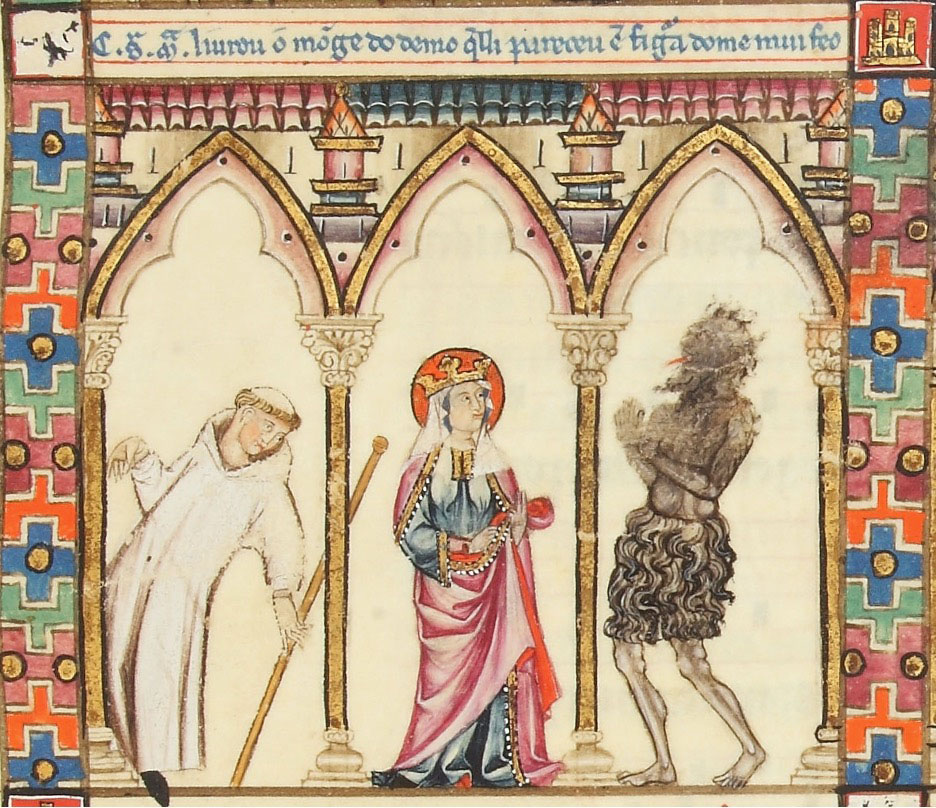 C. S. M̃. liurou o mõge do demo q̃ lli pareceu ẽ fig̃a dome mui feo